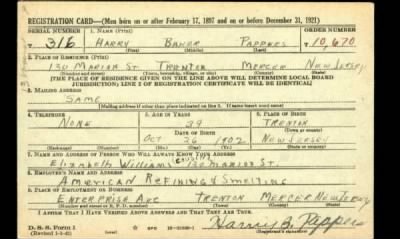 REGISTRATION CARD—(Men born on or after February 17, 1897 and on or before December 31, 1921)
SERIAL NUMBER 1. NAME (Print) ORDER NUMBER
T 316 HARRY BAKER PAPPERS T 10,670
(First) (Middle) (Last)
2. PLACE OF RESIDENCE (Print)
130 MARION ST. TRENTON MERCER NEW JERSEY
(Number and street) (Town, township, village, or city) (County) (State)
[THE PLACE OF RESIDENCE GIVEN ON THE LINE ABOVE WILL DETERMINE LOCAL BOARD
JURISDICTION; LINE 2 OF REGISTRATION CERTIFICATE WILL BE IDENTICAL]
3. MAILING ADDRESS
SAME
[Mailing address if other than place indicated on line 2. If same insert word same]
4. TELEPHONE 5. AGE IN YEARS 6. PLACE OF BIRTH
NONE 39 TRENTON
DATE OF BIRTH (Town or county)
OCT 26 1902 NEW JERSEY
(Mo.) (Day) (Yr.) (State or country)
7. NAME AND ADDRESS OF PERSON WHO WILL ALWAYS KNOW YOUR ADDRESS
ELIZABETH WILLIAMS 130 MARION ST.
8. EMPLOYER'S NAME AND ADDRESS
AMERICAN REFINING & SMELTING
9. PLACE OF EMPLOYMENT OR BUSINESS
ENTERPRISE AVE TRENTON MERCER NEW JERSEY
(Number and street or R. F. D. number) (Town) (County) (State)
I AFFIRM THAT I HAVE VERIFIED ABOVE ANSWERS AND THAT THEY ARE TRUE.
D. S. S. Form 1
(Revised 1-1-42) (over) Harry B. Pappers